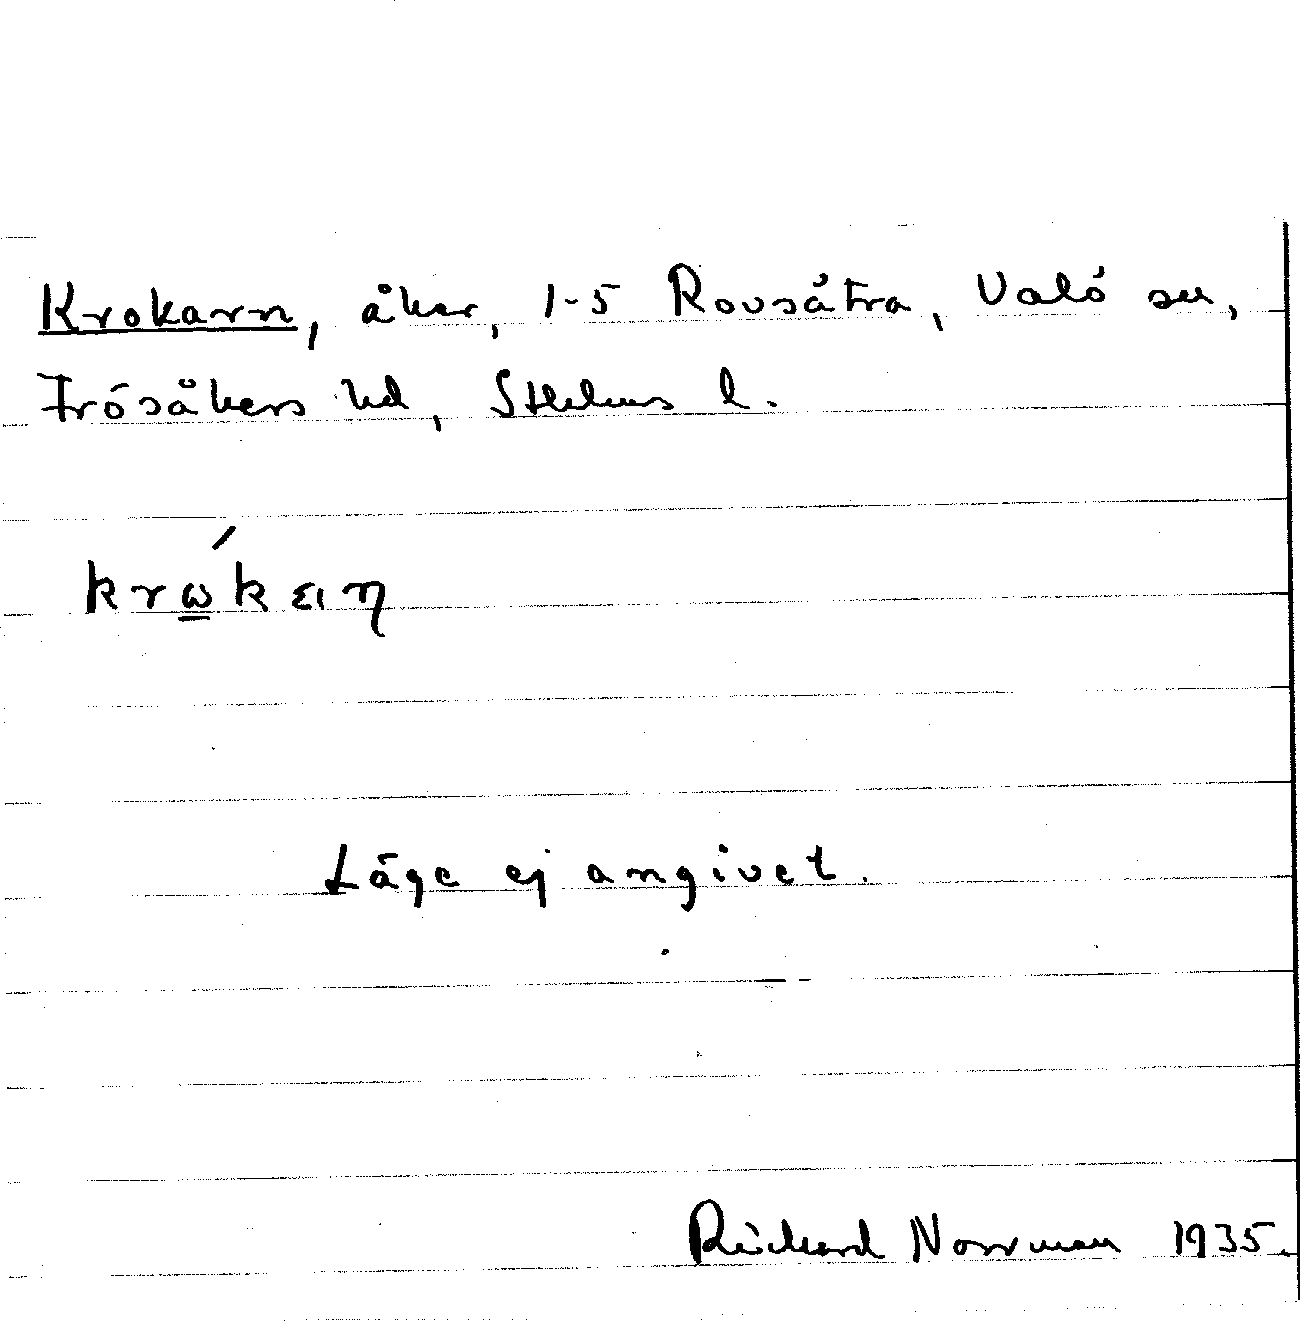 Krokarn, åker, 1-5 Rovsätra, Valö sn,
Frösåkers hd, Sthlms l.
Läge ej angivet.
Rickard Norrman 1935.